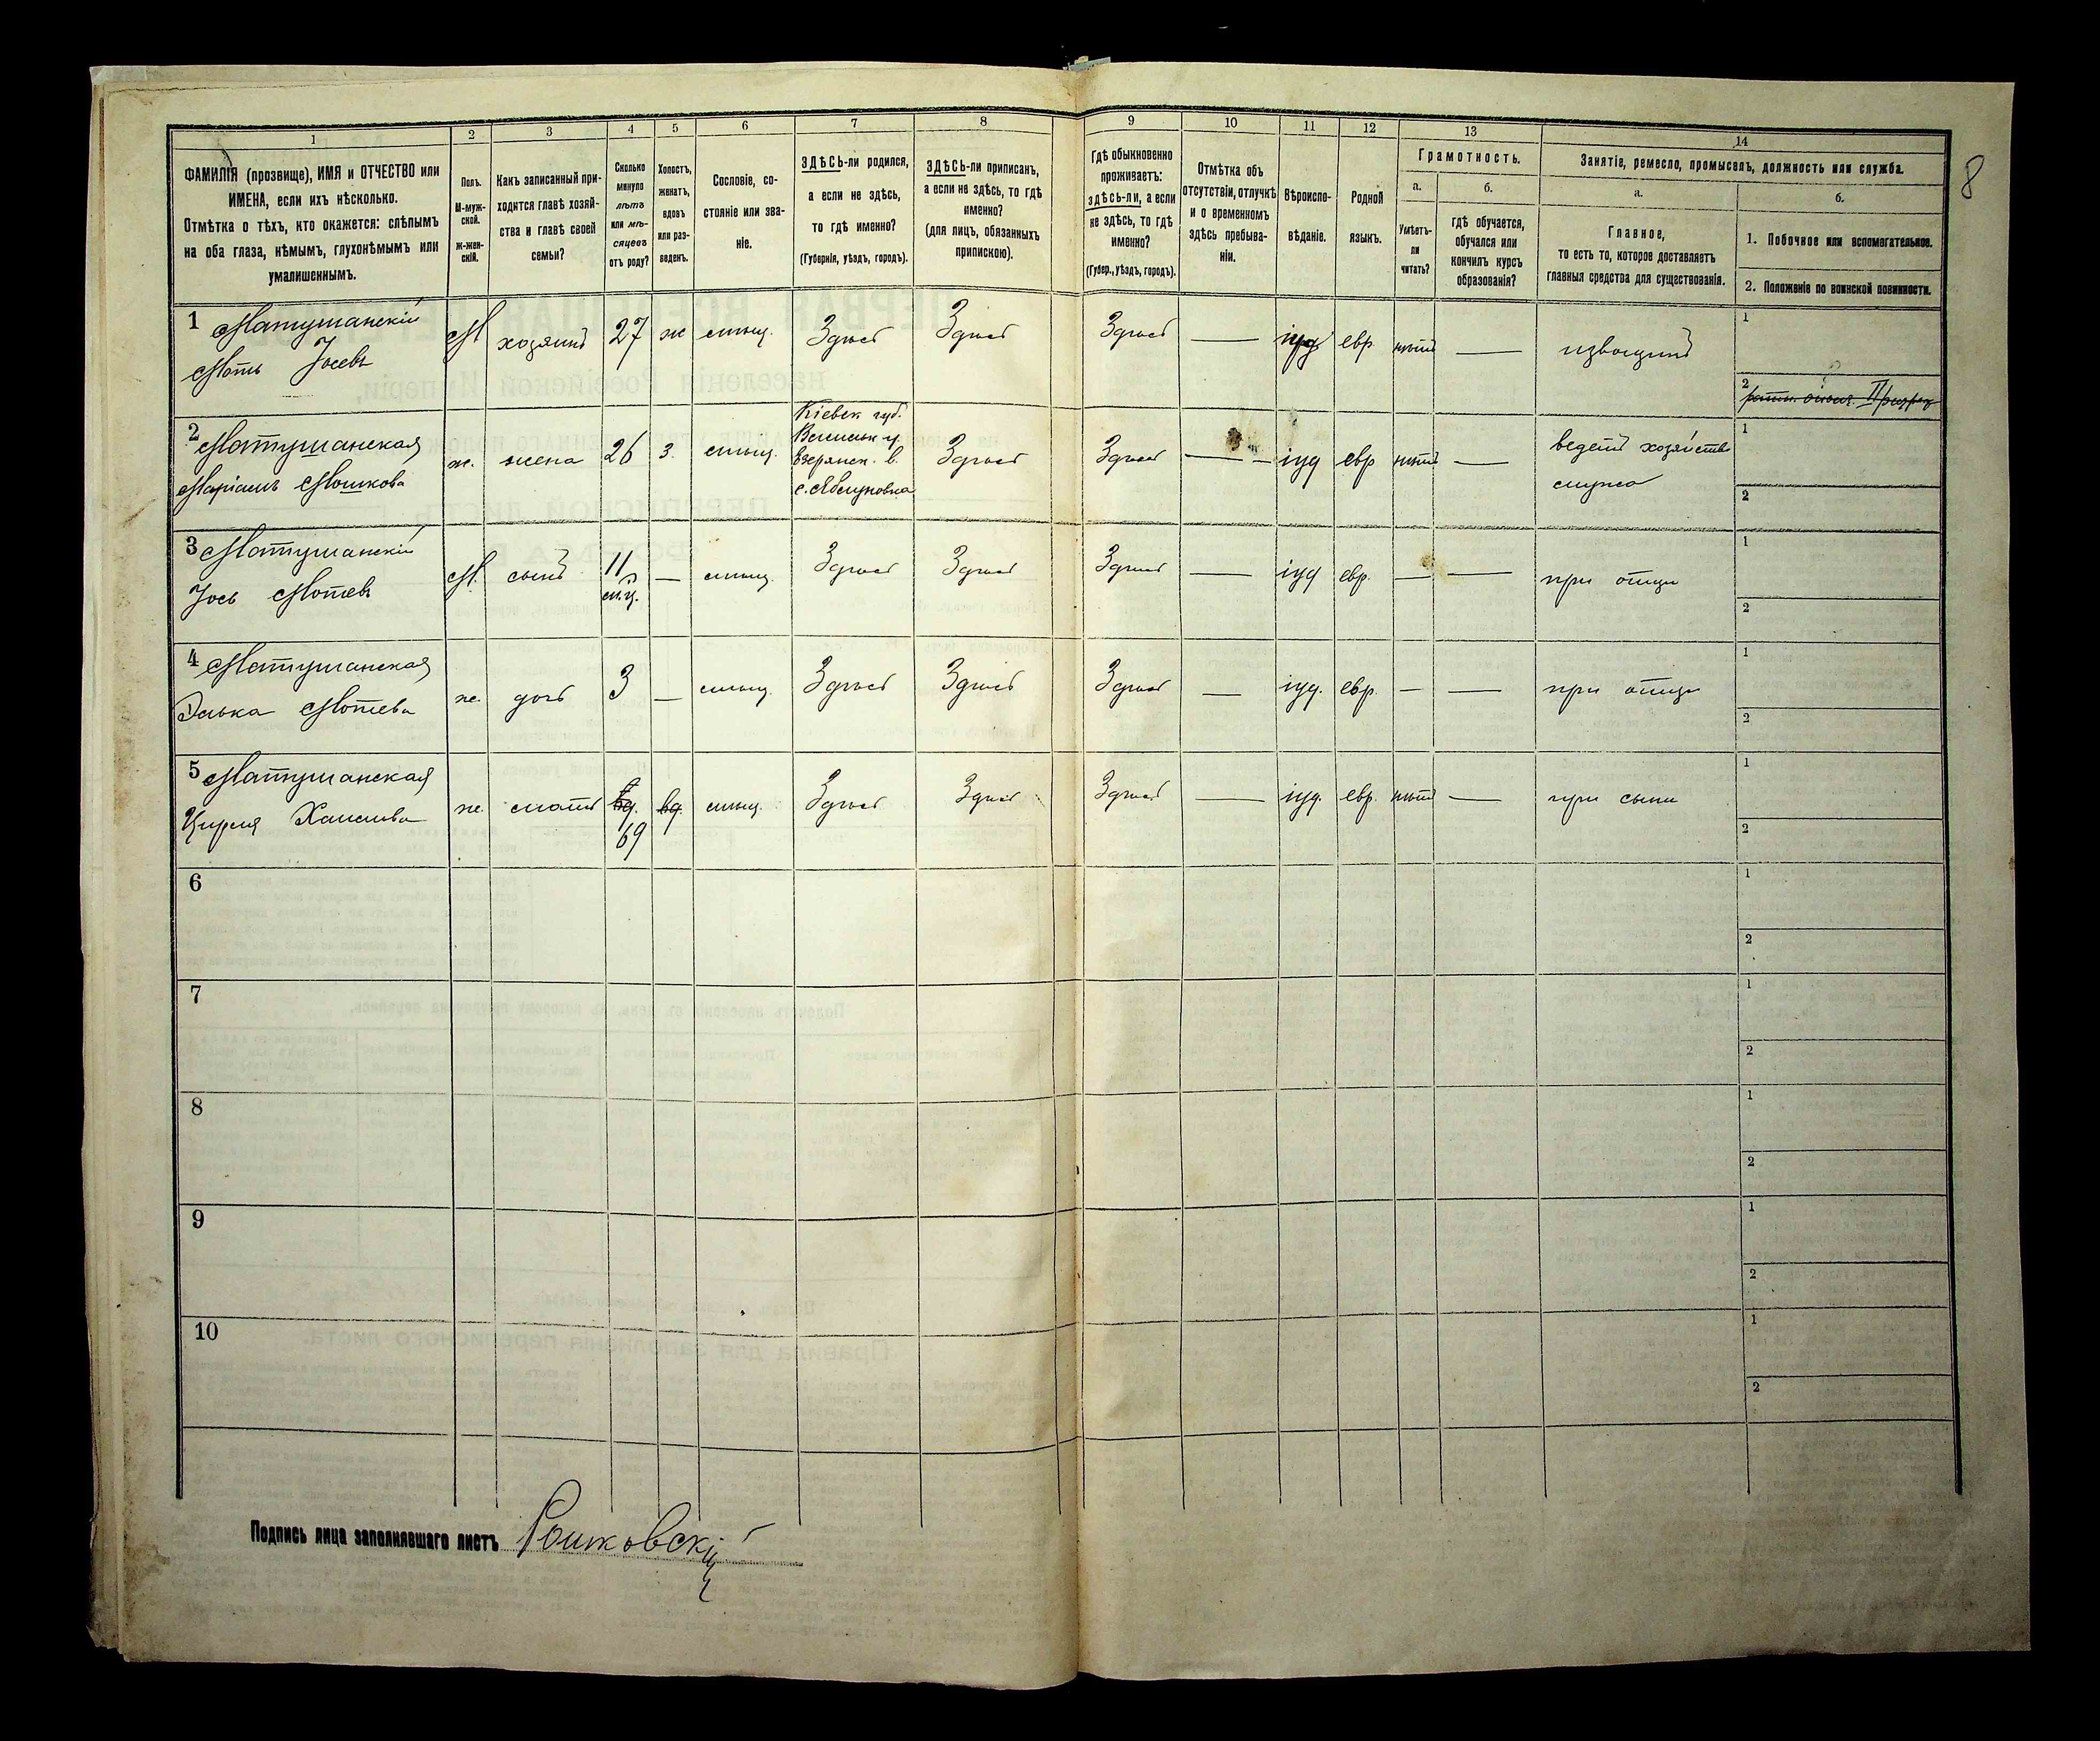 8
1 2 3 4 5 6 7 8 9 10 11 12 13 14
ФАМИЛІЯ (прозвище), ИМЯ и ОТЧЕСТВО или
ИМЕНА, если ихъ нѣсколько.
Отмѣтка о тѣхъ, кто окажется: слѣпымъ
на оба глаза, нѣмымъ, глухонѣмымъ или
умалишеннымъ.
Полъ.
М-муж-
ской.
ж-жен-
скій.
Какъ записанный при-
ходится главѣ хозяй-
ства и главѣ своей
семьи?
Сколько
минуло
лѣтъ
или мѣ-
сяцевъ
отъ роду?
Холостъ,
женатъ,
вдовъ
или раз-
веденъ.
Сословіе, со-
стояніе или зва-
ніе.
ЗДѢСЬ-ли родился,
а если не здѣсь,
то гдѣ именно?
(Губернія, уѣздъ, городъ).
ЗДѢСЬ-ли приписанъ,
а если не здѣсь, то гдѣ
именно?
(для лицъ, обязанныхъ
припискою).
Гдѣ обыкновенно
проживаетъ:
здѣсь-ли, а если
не здѣсь, то гдѣ
именно?
(Губер., уѣздъ, городъ).
Отмѣтка объ
отсутствіи, отлучкѣ
и о временномъ
здѣсь пребыва-
ніи.
Вѣроиспо-
вѣданіе.
Родной
языкъ.
Грамотность.
а.
Умѣетъ-
ли
читать?
б.
гдѣ обучается,
обучался или
кончилъ курсъ
образованія?
Занятіе, ремесло, промыселъ, должность или служба.
а.
Главное,
то есть то, которое доставляетъ
главныя средства для существованія.
б.
1. Побочное или вспомогательное.
2. Положеніе по воинской повинности.
1 Матушанскій
Моть Іосевъ
М хозяинъ 27 ж мѣщ. Здѣсь Здѣсь Здѣсь — іуд евр. нѣтъ — извощикъ
1
2 ратн. ополч. II разр
2 Матушанская
Маріамъ Мошкова
ж. жена 26 з. мѣщ.
Кіевск губ.
в.
Здѣсь Здѣсь — іуд евр нѣтъ —
ведетъ хозяйство
мужа
1
2
3 Матушанскій
Іось Мотевъ
М. сынъ 11 — мѣщ. Здѣсь Здѣсь Здѣсь — іуд евр. — — при отцѣ
1
2
4 Матушанская
Мотева
ж. дочь 3 — мѣщ. Здѣсь Здѣсь Здѣсь — іуд. евр. — — при отцѣ
1
2
5 Матушанская
ж. мать вд. мѣщ. Здѣсь Здѣсь Здѣсь — іуд. евр. нѣтъ — при сынѣ
69
1
2
6
1
2
7
1
2
8
1
2
9
1
2
10
1
2
Подпись лица заполнявшаго листъ